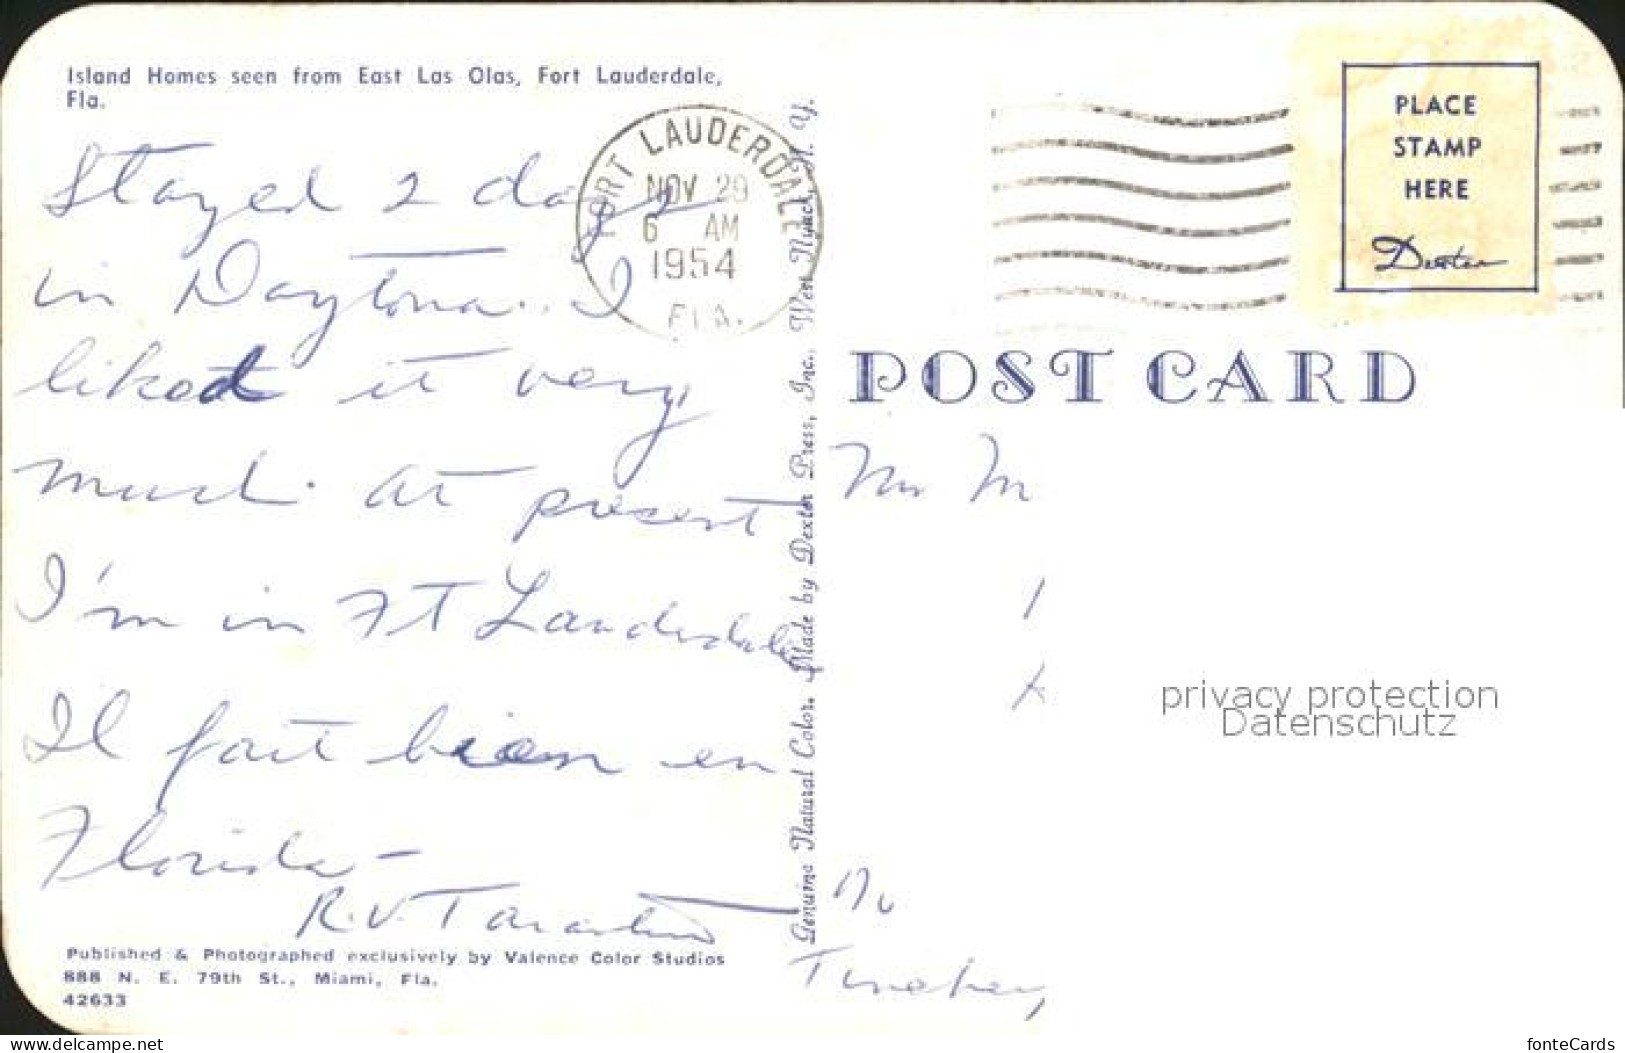 Island Homes seen from East Las Olas, Fort Lauderdale,
Fla.
Stayed 2 days
in Daytona. I
liked it very
much. at present
I'm in Ft Lauderdale
Il fait bien en
Florida -
R.V.
Published & Photographed exclusively by Valence Color Studios
888 N. E. 79th St., Miami, Fla.
42633
FORT LAUDERDALE
NOV 29
6 AM
1954
FLA.
Genuine Natural Color. Made by Dexter Press, Inc., West Nyack, N. Y.
PLACE
STAMP
HERE
Dexter
POST CARD
M
privacy protection
Datenschutz
www.delcampe.net
fonteCards